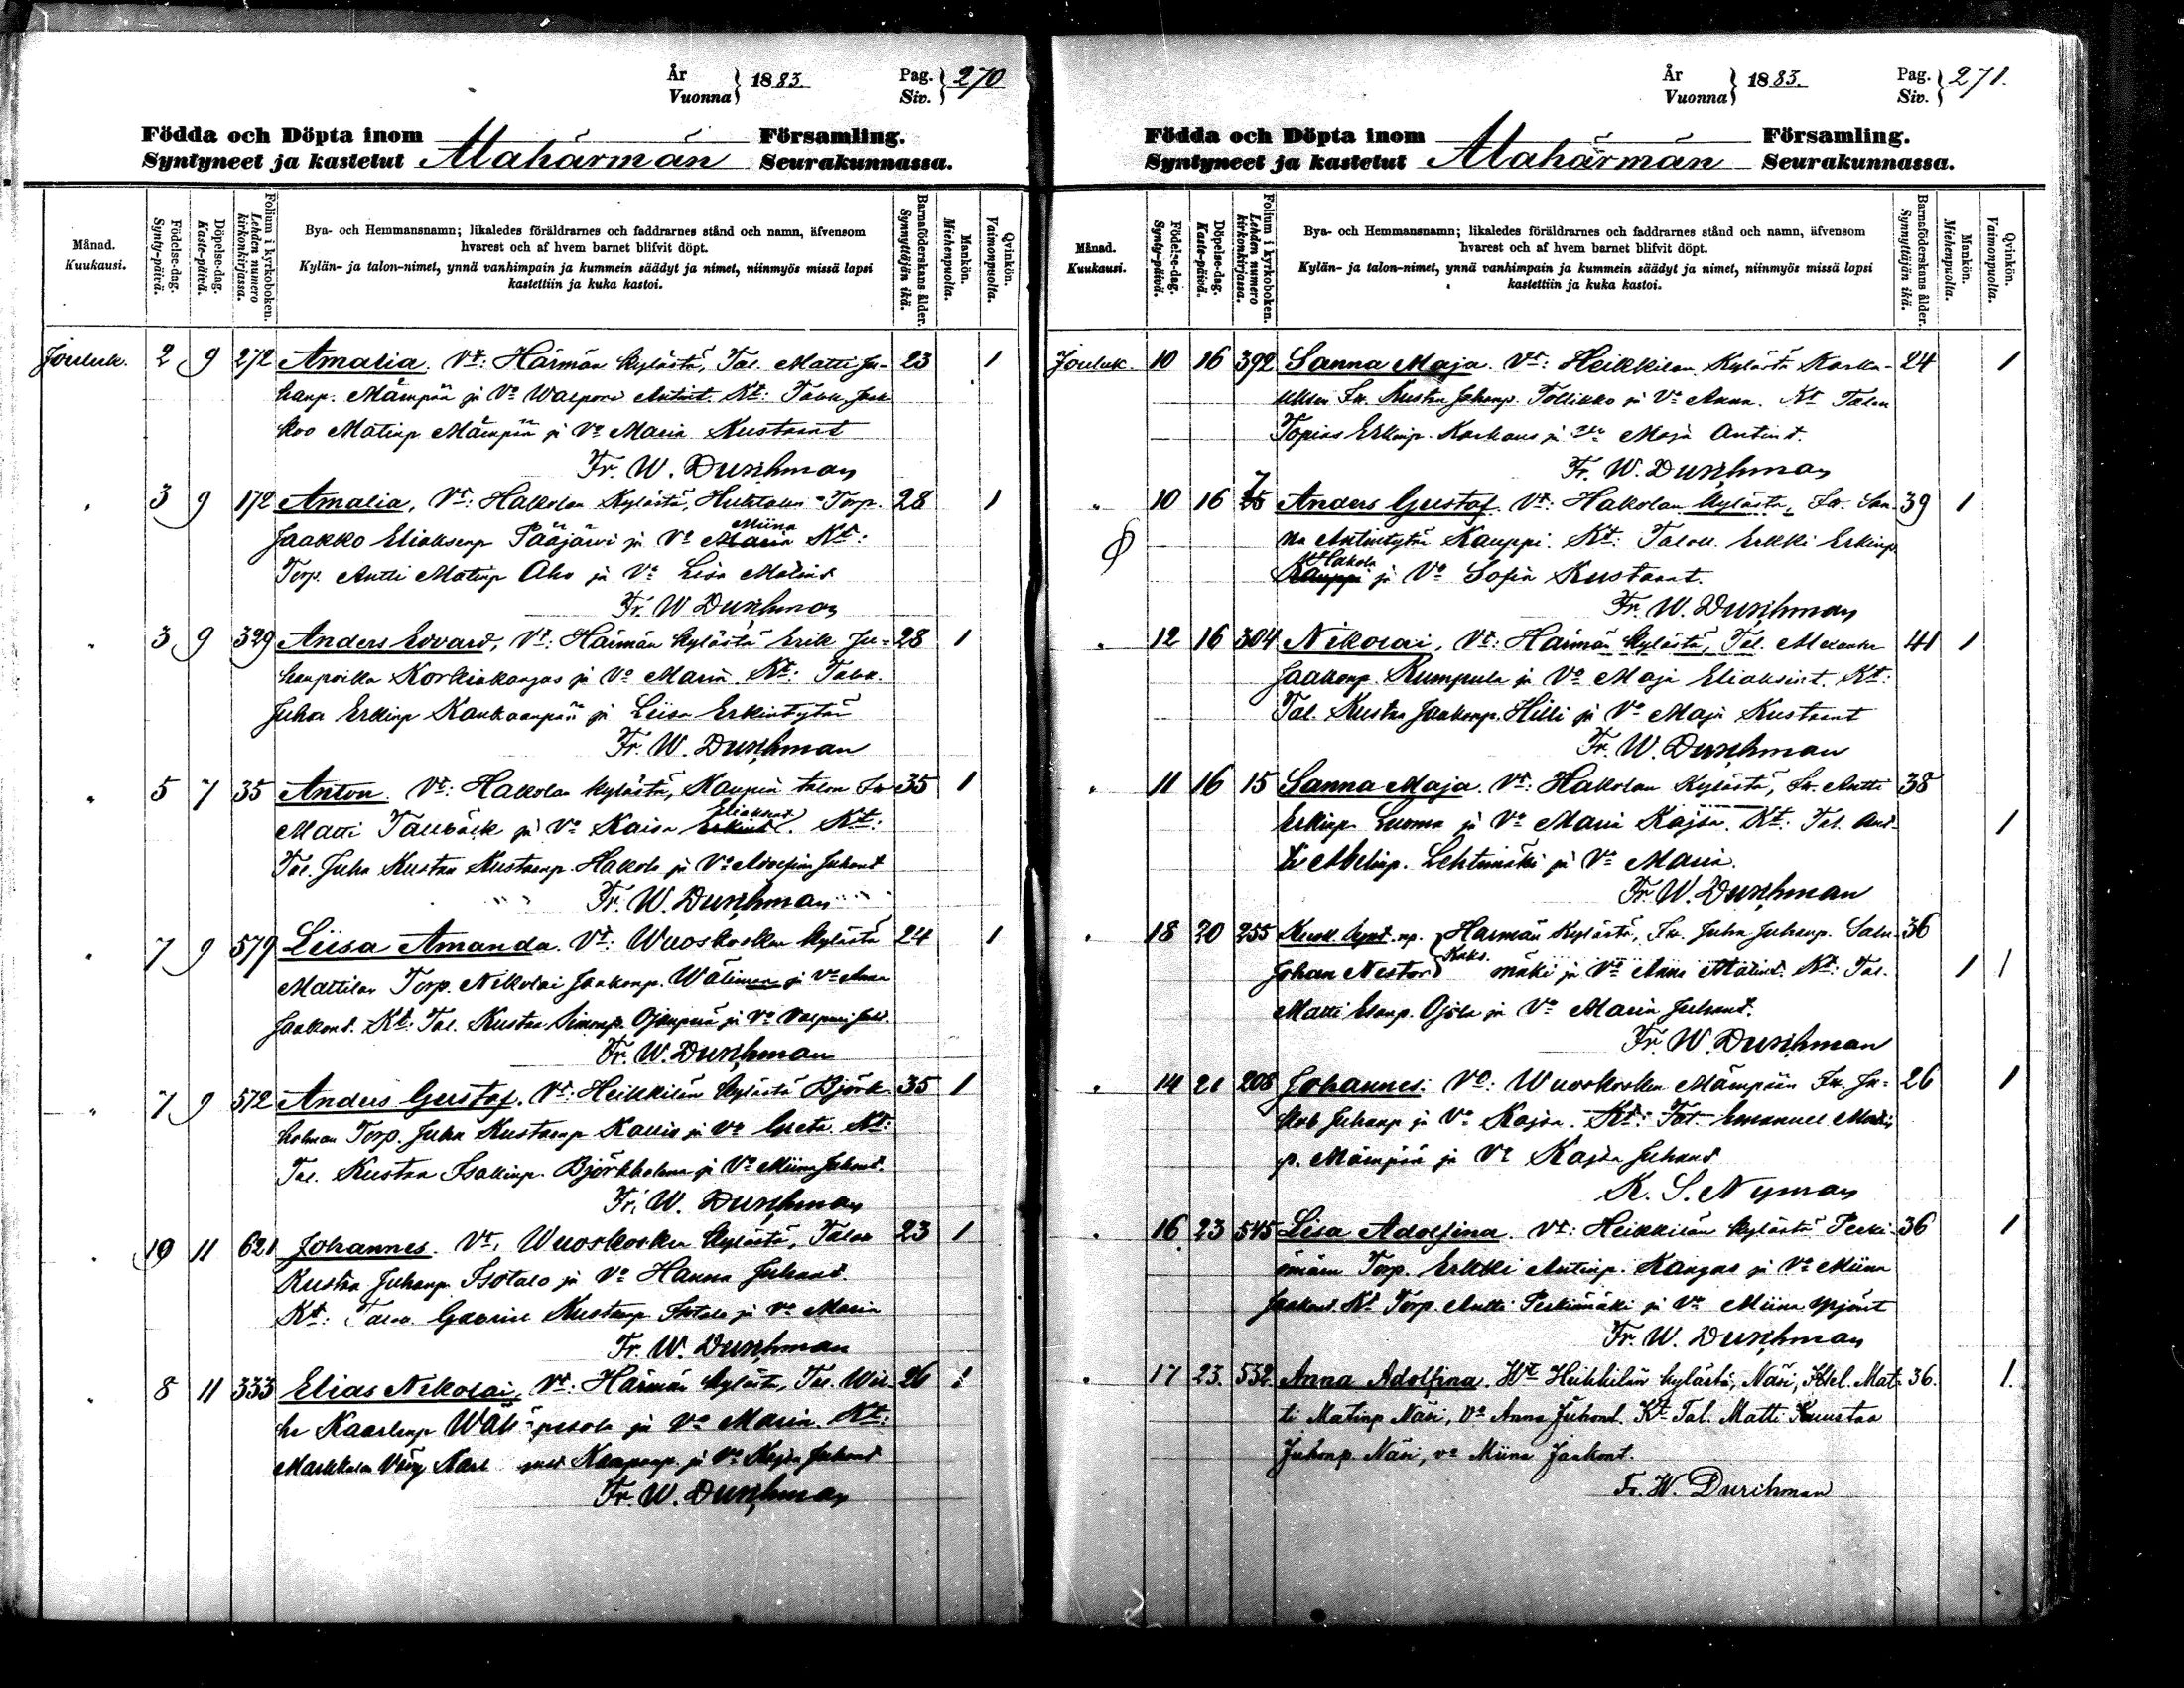 År
Vuonna } 1883.
Pag.
Siv. } 270
Födda och Döpta inom Församling.
Syntyneet ja kastetut Alahärmän Seurakunnassa.
Månad.
Kuukausi.
Födelse-dag.
Synty-päivä.
Döpelse-dag.
Kaste-päivä.
Folium i kyrkoboken.
Lehden numero kirkonkirjassa.
Bya- och Hemmansnamn; likaledes föräldrarnes och faddrarnes stånd och namn, äfvensom
hvarest och af hvem barnet blifvit döpt.
Kylän- ja talon-nimet, ynnä vanhimpain ja kummein säädyt ja nimet, niinmyös missä lapsi
kastettiin ja kuka kastoi.
Barnaföderskans ålder.
Synnyttäjän ikä.
Mankön.
Miehenpuolta.
Qvinkön.
Vaimonpuolta.
Jouluk. 2 9 272 Amalia. Vt: Härmän kylästä, Tal. Matti Ju- 23 1
hanp. Mäenpää ja Vo Walpori Antint. Kt:
koo Matinp Mäenpää ja Vo Maria Kustaant
Fr. W. Durchman
" 3 9 172 Amalia, Vt: Hakolan Kylästä, Torp. 28 1
Jaakko Eliaksenp Pääjärvi ja Vo Maria Miina Kt:
Torp. Antti Matinp Aho ja Vo Lisa Matint
Fr. W Durchman
" 3 9 329 Anders Edvard, Vt: Härmän kylästä Erik Ju- 28 1
hanpoika Korkiakangas ja Vo Maria. Kt:
Juha Erkinp Kankaanpää ja Liisa Erkintytär
Fr. W. Durchman
" 5 7 35 Anton. Vt: Hakolan kylästä, Kaupin talon 35 1
Matti Tallbäck ja Vo Kaisa Erkint Eliakset. Kt:
Tal. Juha Kustaa Kustaanp. Hakola ja Vo Adolfina Juhant
Fr. W. Durchman
" 7 9 579 Liisa Amanda. Vt: Wuoskosken kylästä 24 1
Mattilan Torp. Nikolai Jaakonp. Wälimaa ja Vo Anna
Jaakont. Kt: Tal. Kustaa Simonp. Ojanperä ja Vo Valpuri
Fr. W. Durchman
" 7 9 572 Anders Gustaf. Vt: Heikkilän kylästä Björk- 35 1
holman Torp. Juha Kustaanp ja Vo Greta. Kt:
Tal. Kustaa Isakinp. Björkholma ja Vo Miina Juhant.
Fr. W. Durchman
" 10 11 621 Johannes. Vt: Wuoskosken kylästä, 23 1
Kustaa Juhanp. Isotalo ja Vo Hanna Juhant.
Kt: Kustaanp Isotalo ja Vo Maria
Fr. W. Durchman
" 8 11 333 Elias Nikolai, Vt: Härmän kylästä, Tal. 26 1
Kaarlenp ja Vo Maria. Kt:
ja Vo Kajsa Juhant
Fr. W. Durchman
År
Vuonna } 1883.
Pag.
Siv. } 271.
Födda och Döpta inom Församling.
Syntyneet ja kastetut Alahärmän Seurakunnassa.
Månad.
Kuukausi.
Födelse-dag.
Synty-päivä.
Döpelse-dag.
Kaste-päivä.
Folium i kyrkoboken.
Lehden numero kirkonkirjassa.
Bya- och Hemmansnamn; likaledes föräldrarnes och faddrarnes stånd och namn, äfvensom
hvarest och af hvem barnet blifvit döpt.
Kylän- ja talon-nimet, ynnä vanhimpain ja kummein säädyt ja nimet, niinmyös missä lapsi
kastettiin ja kuka kastoi.
Barnaföderskans ålder.
Synnyttäjän ikä.
Mankön.
Miehenpuolta.
Qvinkön.
Vaimonpuolta.
Jouluk. 10 16 392 Sanna Maja. Vt: Heikkilän Kylästä 24 1
Kustaa Juhanp. Tollikko ja Vo Anna. Kt
Topias Erkinp. Karhaus ja Vo Maja Antint.
Fr. W. Durchman
" 10 16 Anders Gustaf. Vt: Hakolan kylästä, San- 39 1
na Antintytär Kauppi. Kt: Erkki Erkinp.
Kauppi Hakola ja Vo Sofia Kustaant.
Fr. W. Durchman
" 12 16 304 Nikolai, Vt: Härmän kylästä, Tal. 41 1
Jaakonp. Rumpula ja Vo Maja Eliaksint. Kt:
Tal. Kustaa Jaakonp. Hilli ja Vo Maja Kustaant
Fr. W. Durchman
" 11 16 15 Sanna Maja. Vt: Hakolan Kylästä, Antti 38
Erkinp Luoma ja Vo Maria Kajsa. Kt: Tal. 1
Abelinp. Lehtimäki ja Vo Maria.
Fr. W. Durchman
" 18 20 255 Härmän Kylästä, Juha Juhanp. 36
Johan Nestor Kaks. mäki ja Vo Anna Matint. Kt: Tal. 1 1
Matti Esanp. Ojala ja Vo Maria Juhant.
Fr. W. Durchman
" 14 21 208 Johannes: Vo: Wuoskosken Mäenpään Ja- 26 1
kob Juhanp ja Vo Kajsa. Kt: Tal. Emanuel Matin
p. Mäenpää ja Vo Kajsa Juhant
K. S. Nyman
" 16 23 545 Lisa Adolfina. Vt: Heikkilän kylästä Perki- 36 1
ömäen Torp. Erkki Antinp. Kangas ja Vo Miina
Jaakont. Kt Torp. Antti Perkiömäki ja Vo Miina Yrjönt
Fr. W. Durchman
" 17 23. 532. Anna Adolfina. Vt Heikkilän kylästä, Näsi, Mat- 36. 1.
ti Matinp Näsi, Vo Anna Juhont. Kt Tal. Matti Kuustaa
Juhonp. Näsi, vo Miina Jaakont.
Fr. W. Durchman